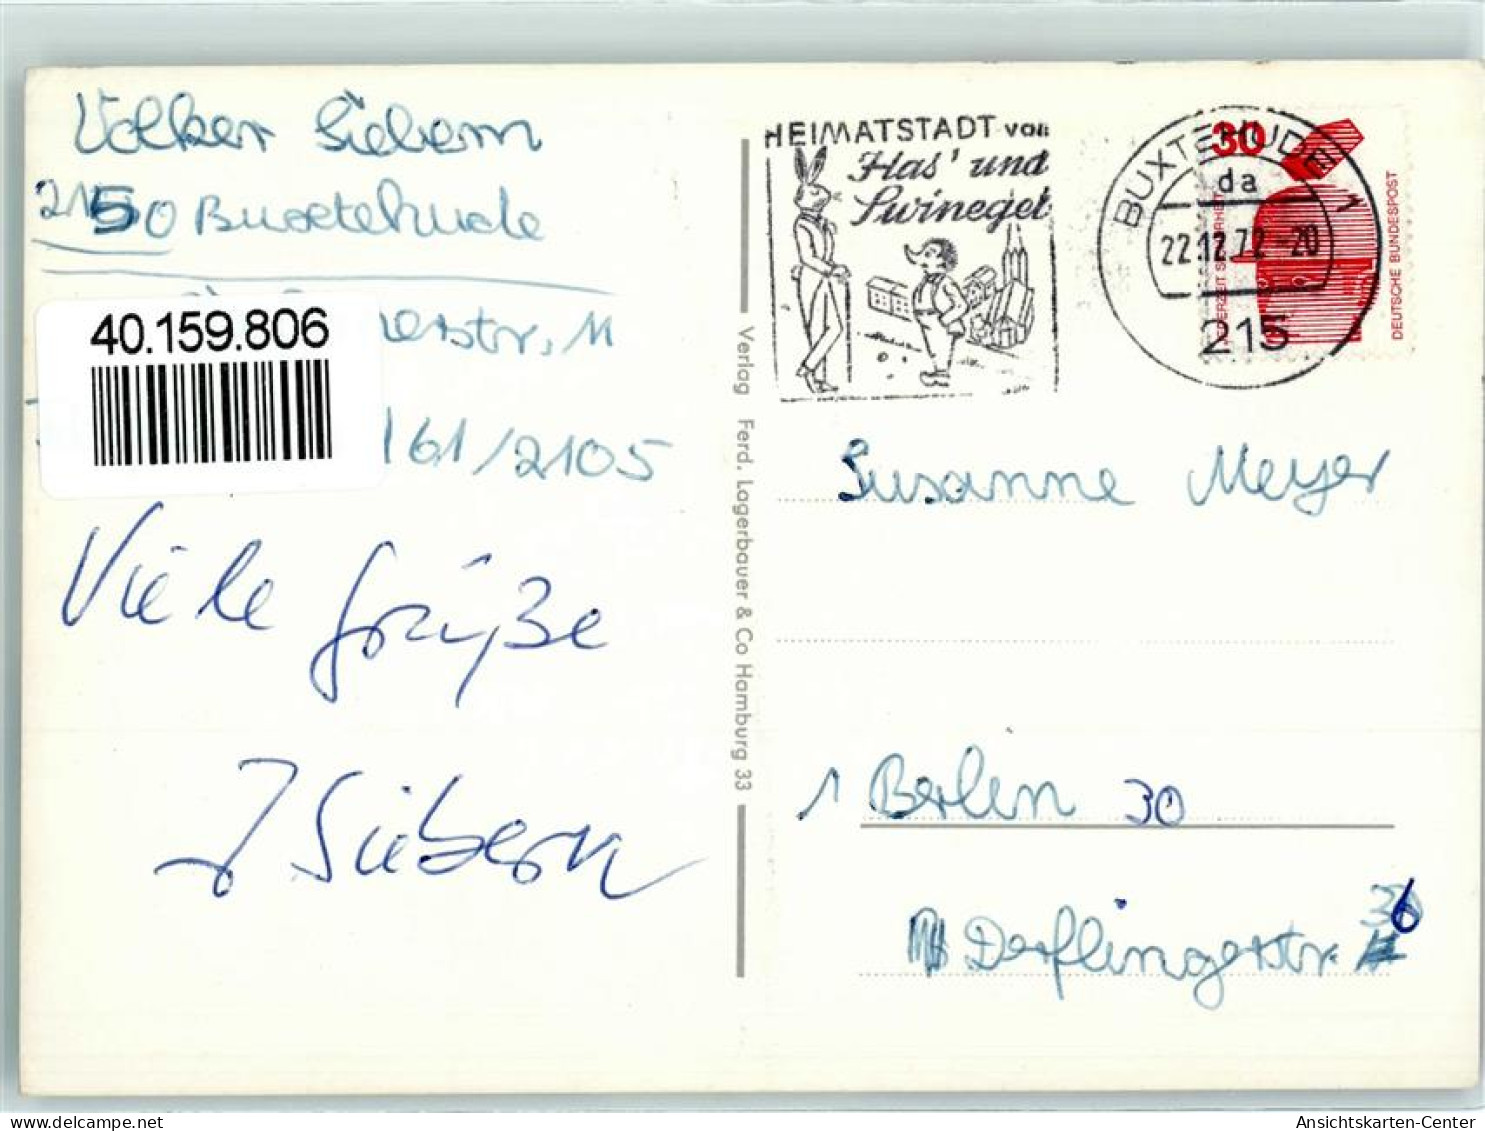 Volker Siebern
2150 Buxtehude
erstr. 11
161/2105
40.159.806
Viele Grüße
Siebern
Verlag Ferd. Lagerbauer & Co Hamburg 33
HEIMATSTADT von
Has' und
Swinegel
BUXTEHUDE 1
da
22.12.72-20
215
30
JEDERZEIT SICHERHEIT
DEUTSCHE BUNDESPOST
Susanne Meyer
1 Berlin 30
Derflingerstr. 6
delcampe.net
Ansichtskarten-Center